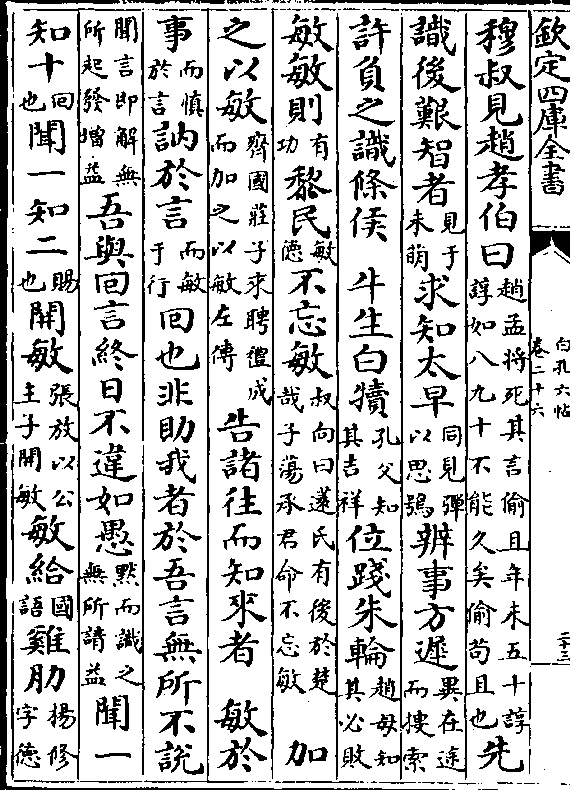 欽定四庫全書
白孔六帖
卷二十六
二十三
穆叔見趙孝伯曰趙孟將死其言偷且年未五十諄諄如八九十不能久矣偷苟且也先
識後艱智者見于未萌求知太早同見彈以思鴞辨事方遲異在途而捜索
許負之識條侯 牛生白犢孔父知其吉祥位踐朱輪趙母知其必敗
敏敏則有功黎民敏德不忘敏叔向曰薳氏有後於楚哉子蕩承君命不忘敏 加
之以敏齊國莊子來聘禮成而加之以敏左傳告諸往而知來者 敏於
事而慎於言訥於言而敏于行回也非助我者於吾言無所不說
聞言即解無所起發增益吾與回言終日不違如愚黙而識之無所請益聞一
知十回也聞一知二賜也開敏張放以公主子開敏敏給國語雞肋楊修字德